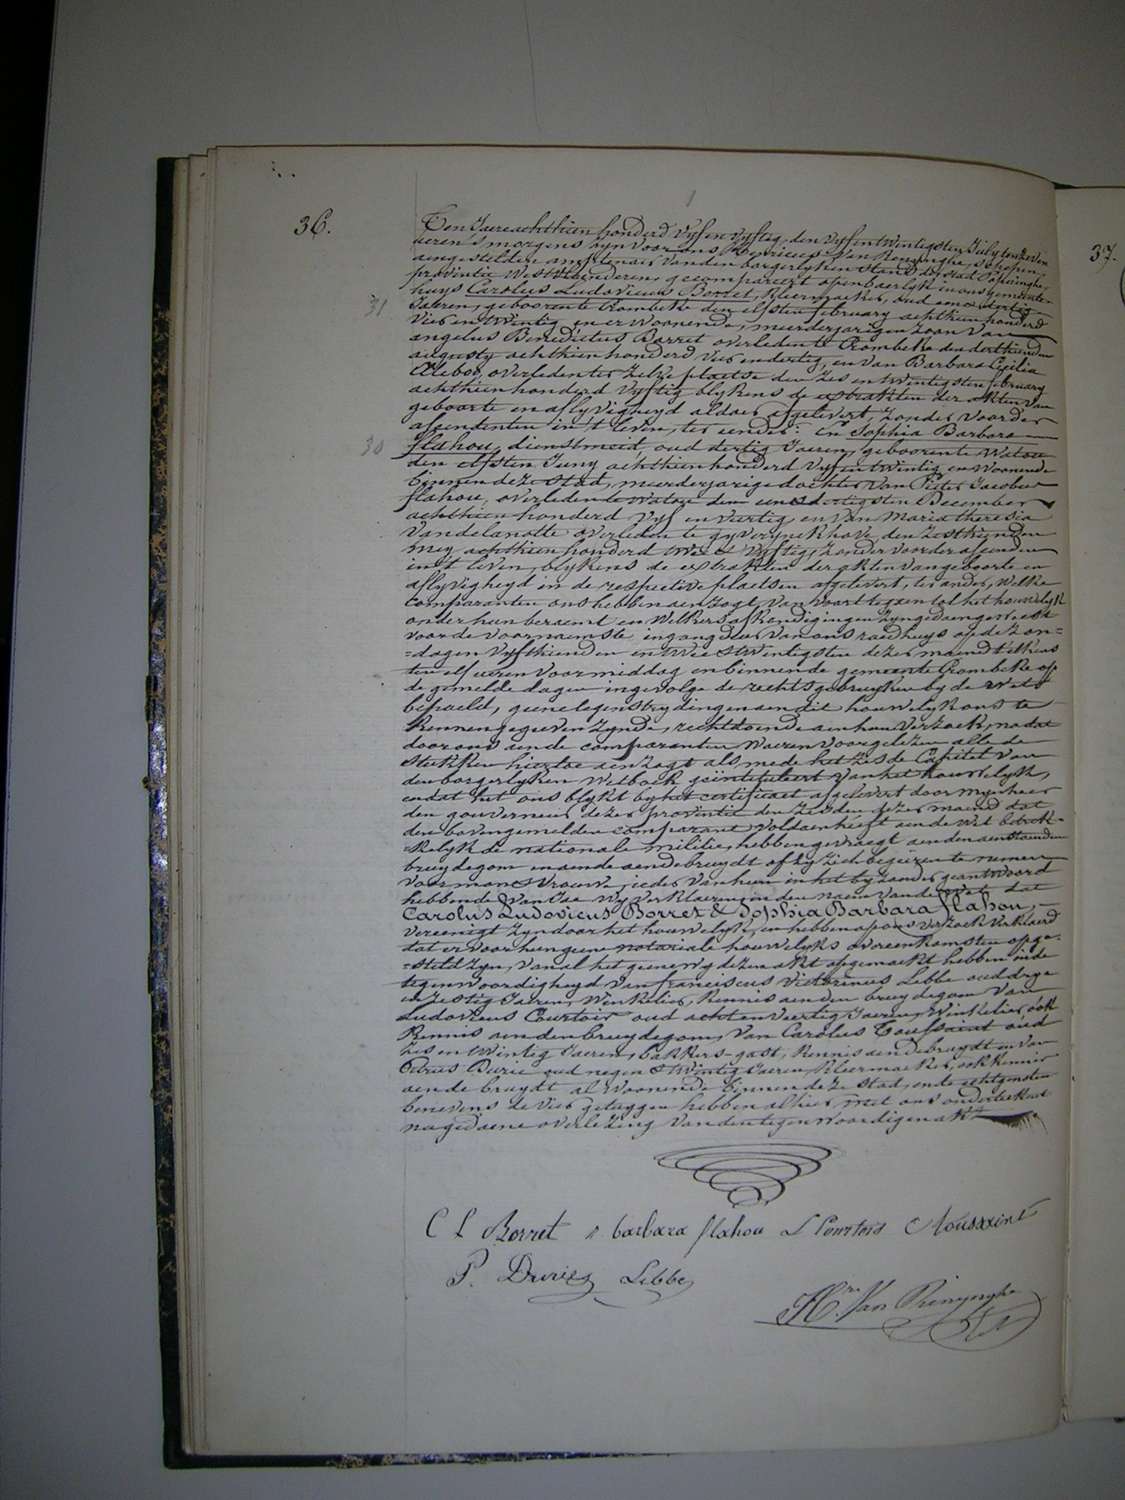 36.
37.
Ten Jaere achthien honderd Vyf en Vyftig, den Vyf en twintigsten July ten zeven
ueren 's morgens zyn voor ons Henricus Van Renynghe, Schepen,
aengestelden amptenaer van den borgerlyken Stand der Stad Poperinghe,
provintie Westvlaenderen, gecompareert openbaerlyk in ons gemeente-
huys Carolus Ludovicus Borret, Kleermaeker, oud een en dertig
31
Jaeren, geboren te Crombeke den elfsten february achthien honderd
Vier en twintig en er woonende, meerderjarigen zoon van
angelus Benedictus Borret overleden te Crombeke den derthienden
augusty achthien honderd Vier en dertig, en van Barbara Cecilia
overleden ter zelve plaetse den zes en twintigsten february
achthien honderd Vyftig blykens de extrakten der akten van
geboorte en aflyvigheyd aldaer afgelevert, zonder voorder
ascendenten in 't leven, ter eender: En Sophia Barbara
30
flahou, dienstmeid, oud dertig Jaeren, geboren te Watou
den elfsten Juny achthien honderd Vyf en twintig en woonende
binnen deze stad, meerderjarige dochter van Pieter Jacobus
flahou, overleden te Watou den een en dertigsten December
achthien honderd Vyf en veertig, en van Maria theresia
Vandelanotte overleden te gyverynckhove den zesthienden
mey achthien honderd twee & Vyftig, zonder voorder ascendenten
in 't leven, blykens de extrakten der akten van geboorte en
aflyvigheyd in de respective plaetsen afgelevert, ter ander, Welke
comparanten ons hebben aenzogt, van voort te gaen tot het houwelyk
onder hun beraemt en welkers afkondigingen zyn gedaen geweest
voor de voornaemste ingangdeur van ons raedhuys op de zon=
=dagen Vyfthienden en twee & twintigsten dezer maend telkens
ten elf ueren voormiddag en binnen de gemeente Crombeke op
de gemelde dagen ingevolge de rechtsgebruyken by de Wet
bepaeld, geene tegenstrydingen aen dit houwelyk ons te
kennen gegeven zynde, rechtdoende aen hun verzoek, na dat
door ons aen de comparanten waeren voorgelezen alle de
stukken hiertoe aenzogt als mede het zesde Capitel van
den borgerlyken Wetboek geïntituleert Van het houwelyk,
en dat het ons blykt by het certificaet afgelevert door mynheer
den gouverneur dezer provintie den zesden dezer maend dat
den bovengemelden comparant voldaen heeft aen de Wet betrek-
=kelyk de nationale militie, hebben gevraegt aen den aenstaenden
bruydegom en aen de aenstaende bruydt of zy zich begeeren te nemen
voor man & vrouwe, ieder van hun in het byzonder geantwoord
hebbende van Jae, wy verklaeren in den naem van de Wet dat
Carolus Ludovicus Borret & Sophia Barbara flahou,
vereenigt zyn door het houwelyk, en hebben op ons verzoek verklaerd
dat er voor hun geene notariale houwelyks overeenkomsten opge-
=steld zyn, van al het geene wy dezen akt opgemaekt hebben in de
tegenwoordigheyd van franciscus Victorinus Lebbe oud drye
en zestig Jaeren, winkelier, kennis aen den bruydegom van
Ludovicus Courtois oud acht en veertig Jaeren, winkelier, ook
kennis aen den bruydegom, van Carolus Toussaint oud
zes en twintig Jaeren, bakkers-gast, kennis aen de bruydt en van
Petrus Durie oud negen & twintig Jaeren, kleermaeker, ook kennis
aen de bruydt al woonende binnen deze stad, ende echtgenoten
benevens de vier getuygen hebben alhier met ons onderteekent
na gedaene overlezing van den tegenwoordigen akt
C L Borret s barbara flahou L Courtois C Toussaint
P. Durie Lebbe
Hri. Van Renynghe